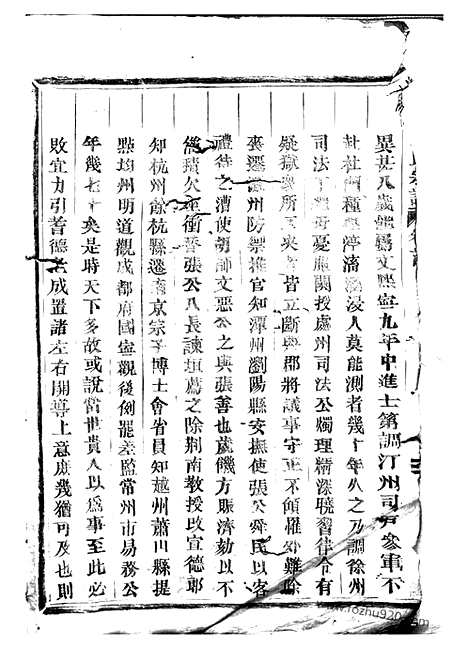 異甚八歲能屬文熙寧九年中進士第調汀州司戶參軍不
赴杜門種學渟滀涵浸人莫能測者幾十年久之乃調徐州
司法丁 憂服闋授處州司法公燭理精深曉習律令有
疑獄眾所 夾者皆立斷與郡將議事守正不傾罹外難除
喪遷 州防禦推官知潭州瀏陽縣安撫使張公舜民以客
禮待之漕使胡師文惡公之與張善也歲饑方賑濟劾以不
催積欠 衝替張公入長諫垣薦之除荆南教授改宣德郎
知杭州餘杭縣遷南京宗子博士會省員知越州蕭山縣提
點均州明道觀成都府國寧觀後例罷差監常州市易務公
年幾七十矣是時天下多故或說當世貴人以爲事至此必
敗宜力引耆德老成置諸左右開導上意庶幾猶可及也則
www.rozhu920.com